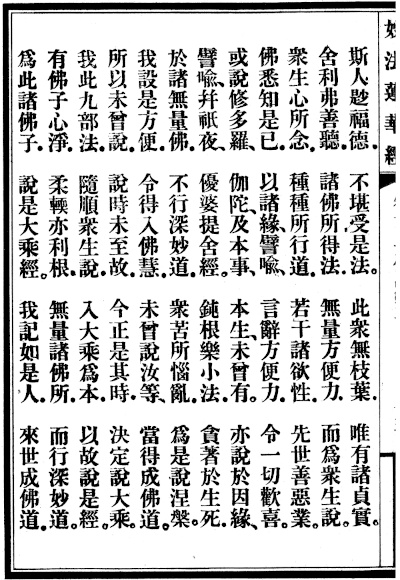 妙法蓮華經
斯人尠福德。不堪受是法。此衆無枝葉。唯有諸貞實。
舍利弗善聽。諸佛所得法。無量方便力。而爲衆生說。
衆生心所念。種種所行道。若干諸欲性。先世善惡業。
佛悉知是已。以諸緣譬喩、言辭方便力。令一切歡喜。
或說修多羅、伽陀及本事、本生未曾有。亦說於因緣、
譬喩、幷祇夜、優婆提舍經。鈍根樂小法。貪著於生死。
於諸無量佛。不行深妙道。衆苦所惱亂。爲是說涅槃。
我設是方便。令得入佛慧。未曾說汝等、當得成佛道。
所以未曾說。說時未至故。今正是其時。決定說大乘。
我此九部法。隨順衆生說。入大乘爲本。以故說是經。
有佛子心淨。柔輭亦利根。無量諸佛所。而行深妙道。
爲此諸佛子。說是大乘經。我記如是人。來世成佛道。